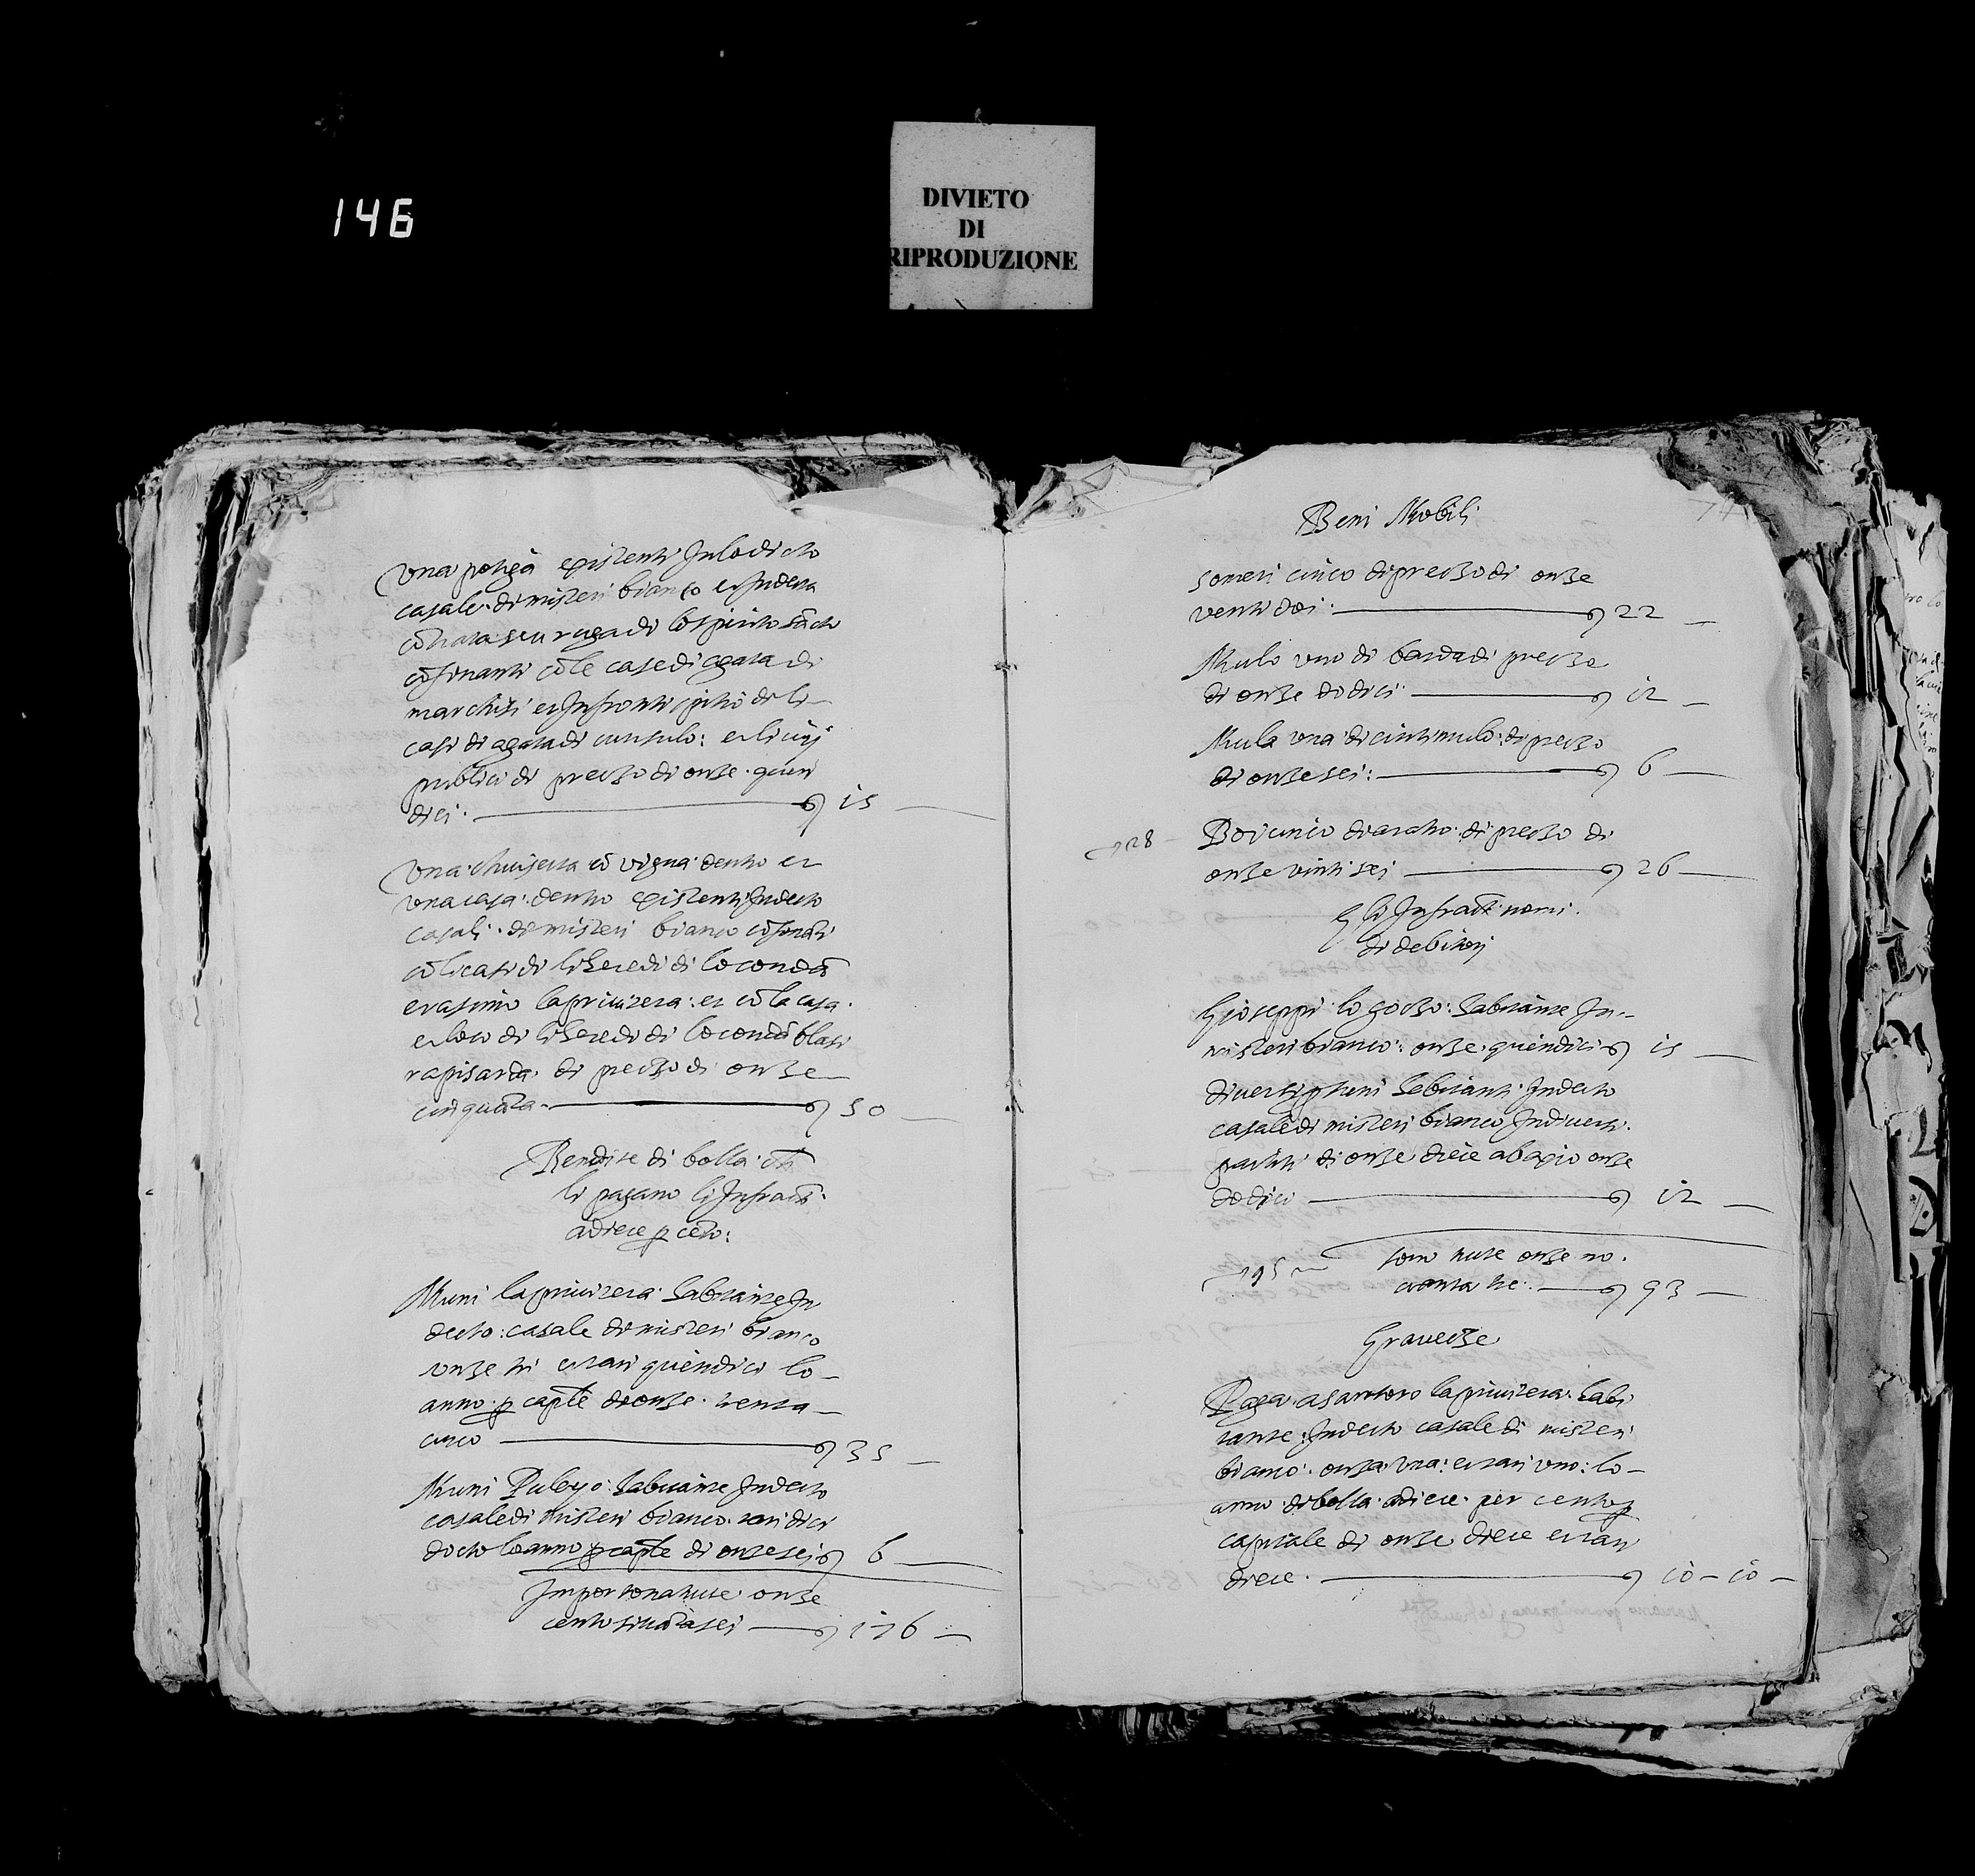 146
DIVIETO
DI
RIPRODUZIONE
Una potiga existenti In lo dicto
casale di misteri bianco et In detta
cõtrata seu ruga di lo spirito sãcto
cõfinanti cõ le case di agata di
marchisi et In fronti spitio de li
casi di agata di cunsulo: et li vij
publici di prezzo di onze quin
dici 15
Una chiusetta cõ vigna dentro et
una casa dentro existenti In decto
casali di misteri bianco cõfinãti
cõ li casi di li heredi di lo condã
erasimo la privitera: et cõ la casa
et loco di li heredi di lo condã blasi
rapisarda di prezzo di onze
cinquãta 50
Rendite di bolla chi
li pagano li Infracti
a diece p cẽto:
Muni la privitera habitante In
decto: casale di misteri bianco
onze tri et tari quindici lo
anno p capitle di onze trenta
cinco 35
Muni Puleyo habitante In decto
casale di misteri bianco tari dici
docto lo anno p capitle di onze sei 6
Importano tutte onze
cento sittãta sei 176
Beni Mobili
someri cinco di prezzo di onze
venti doi 22
Mulo uno di barda di prezzo
di onze dodici 12
Mula una di cintimulo di prezzo
di onze sei: 6
128
Boi cinco di aratro di prezzo di
onze vinti sei 26
E li Infracti nomi
di debitori
Gioseppi lo gozzo: habitante In
misteri bianco: onze quindici 15
diversi psuni habitanti In decto
casale di misteri bianco In diversi
partiti di onze diece abaxio onze
dodici 12
195
sono tutte onze no
vanta tre: 93
Gravezze
Paga a santoro la privitera: habi
tante In decto casale di misteri
bianco: onza una: et tari uno: lo
anno di bolla a diece per cento p
capitale di onze diece et tari
diece 10 - 10